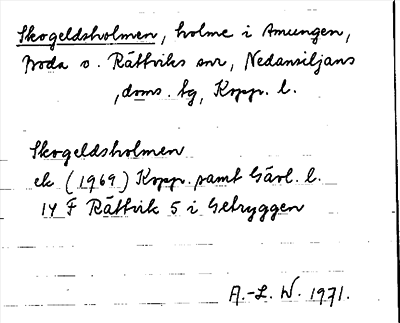 Skogeldsholmen, holme i Amungen,
Boda o. Rättviks snr, Nedansiljans
doms. tg, Kopp. l.
Skogeldsholmen
ek (1969) Kopp. samt Gävl. l.
14 F Rättvik 5 i Getryggen
A.-L. W. 1971.